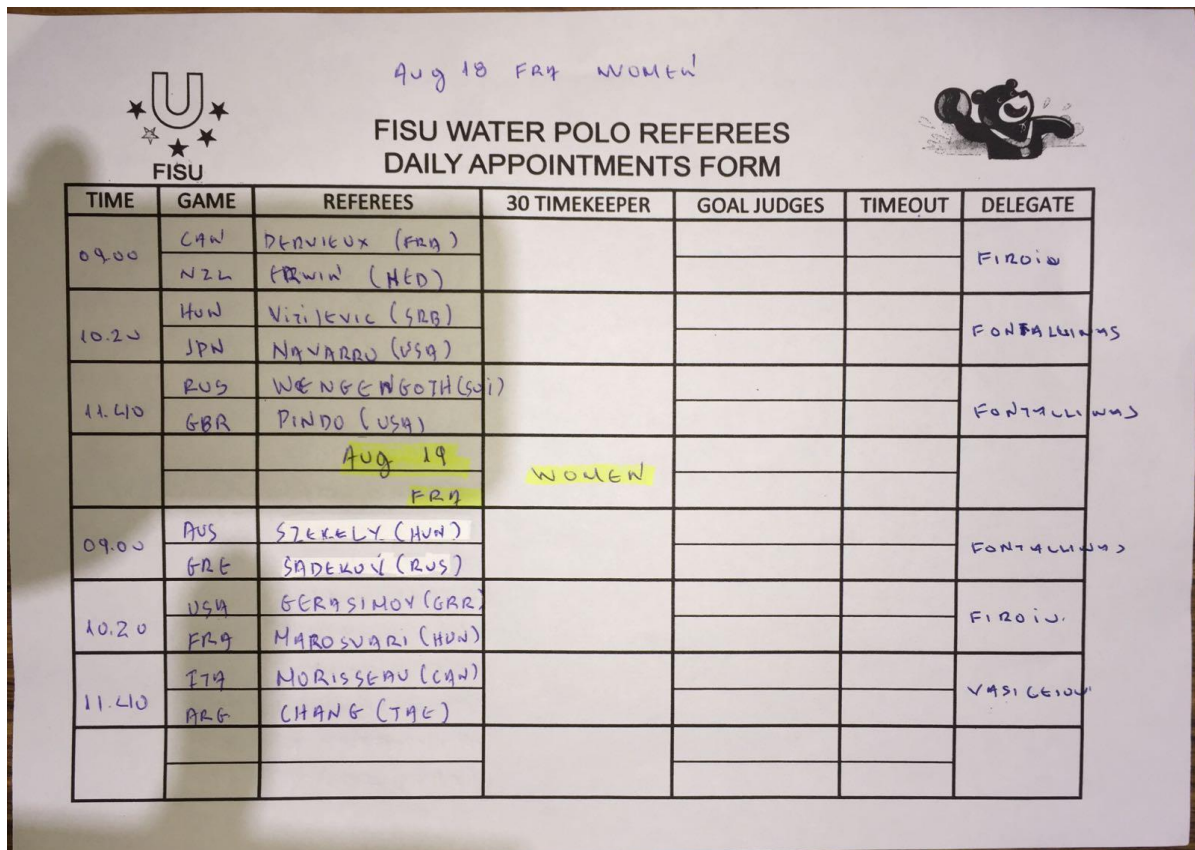 Aug 18 FRA WOMEN
FISU
FISU WATER POLO REFEREES
DAILY APPOINTMENTS FORM
TIME GAME REFEREES 30 TIMEKEEPER GOAL JUDGES TIMEOUT DELEGATE
09.00 CAN DERVIEUX (FRA) FIROIU
NZL ERWIN (NED)
10.20 HUN VIZILJEVIC (SRB) FONTALLINAS
JPN NAVARRO (USA)
11.40 RUS WENGENGOTH (SUI) FONTALLINAS
GBR PINDO (USA)
Aug 19 WOMEN
FRA
09.00 AUS SZEKELY (HUN) FONTALLINAS
GRE SADEKOV (RUS)
10.20 USA GERASIMOV (GRR) FIROIU.
FRA MAROSVARI (HUN)
11.40 ITA MORISSEAU (CAN)
ARG CHANG (TAE)